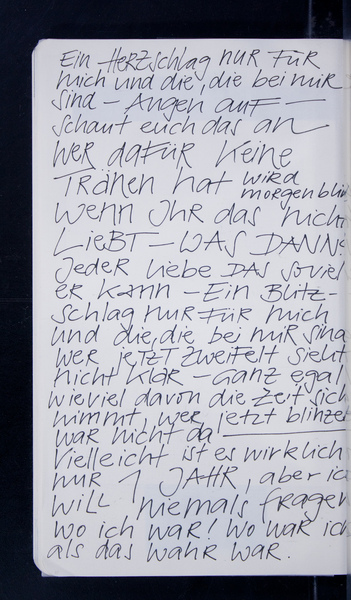 Ein Herzschlag nur für
mich und die, die bei mir
sind – Augen auf –
schaut euch das an
wer dafür keine
Tränen hat wird
morgen blin
wenn Ihr das nich
Liebt – was dann?
Jeder liebe das soviel
er kann – Ein Blitz-
schlag nur für mich
und die, die bei mir sind
wer jetzt zweifelt sieht
nicht klar – ganz egal
wieviel davon die Zeit sich
nimmt, wer jetzt blinzel
war nicht da
Vielleicht ist es wirklich
nur 1 Jahr, aber ic
will niemals fragen
wo ich war! Wo war ich
als das wahr war.